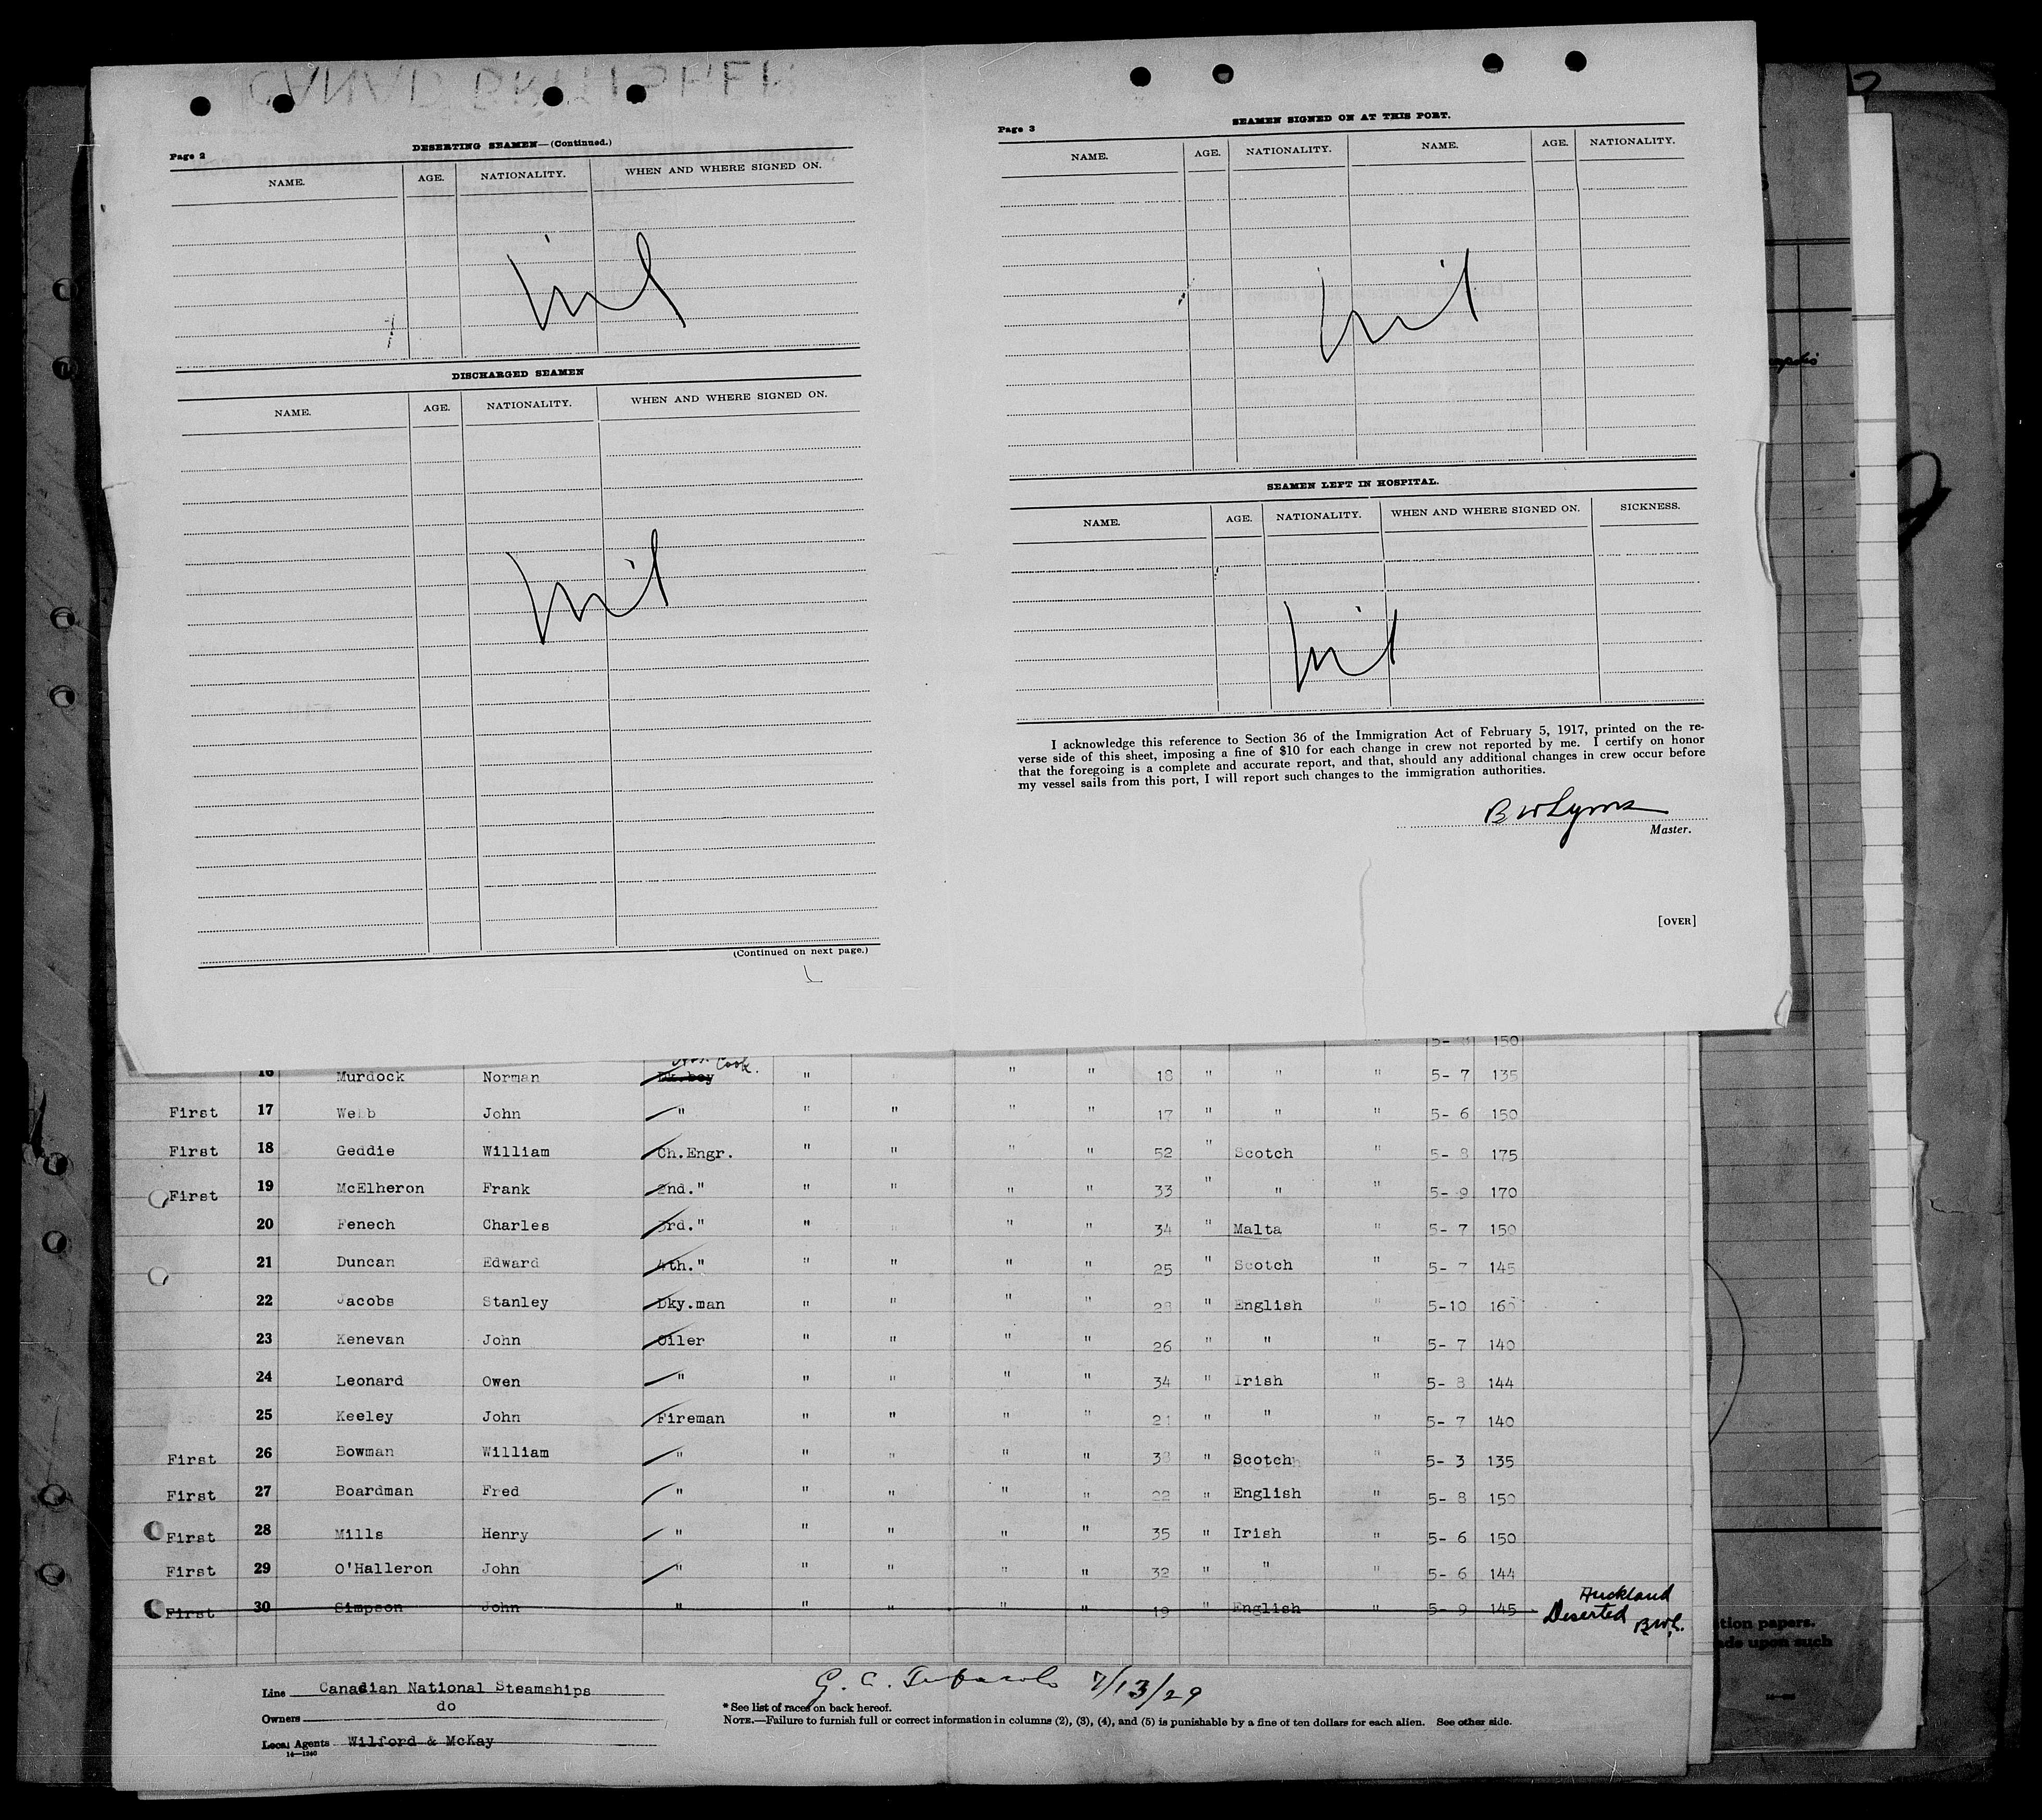 CANAD BRITISHER
Page 2
DESERTING SEAMEN—(Continued.)
NAME. AGE. NATIONALITY. WHEN AND WHERE SIGNED ON.
nil
DISCHARGED SEAMEN
NAME. AGE. NATIONALITY. WHEN AND WHERE SIGNED ON.
nil
(Continued on next page.)
Page 3
SEAMEN SIGNED ON AT THIS PORT.
NAME. AGE. NATIONALITY. NAME. AGE. NATIONALITY.
nil
SEAMEN LEFT IN HOSPITAL.
NAME. AGE. NATIONALITY. WHEN AND WHERE SIGNED ON. SICKNESS.
nil
I acknowledge this reference to Section 36 of the Immigration Act of February 5, 1917, printed on the re-
verse side of this sheet, imposing a fine of $10 for each change in crew not reported by me. I certify on honor
that the foregoing is a complete and accurate report, and that, should any additional changes in crew occur before
my vessel sails from this port, I will report such changes to the immigration authorities.
B W Lyons
Master.
[OVER]
5- 8 150
Cook.
16 Murdock Norman Dk.boy " " " 18 " " " 5- 7 135
First 17 Webb John " " " " " 17 " " " 5- 6 150
First 18 Geddie William Ch.Engr. " " " " 52 " Scotch " 5- 8 175
First 19 McElheron Frank 2nd." " " " " 33 " " " 5- 9 170
20 Fenech Charles 3rd." " " " " 34 " Malta " 5- 7 150
21 Duncan Edward 4th." " " " " 25 " Scotch " 5- 7 145
22 Jacobs Stanley Dky.man " " " " 28 " English " 5-10 165
23 Kenevan John Oiler " " " " 26 " " " 5- 7 140
24 Leonard Owen " " " " " 34 " Irish " 5- 8 144
25 Keeley John Fireman " " " " 21 " " " 5- 7 140
First 26 Bowman William " " " " " 38 " Scotch " 5- 3 135
First 27 Boardman Fred " " " " " 22 " English " 5- 8 150
First 28 Mills Henry " " " " " 35 " Irish " 5- 6 150
First 29 O'Halleron John " " " " " 32 " " " 5- 6 144
First 30 Simpson John " " " " " 19 " English " 5- 9 145 Deserted Auckland B.W.L.
Line Canadian National Steamships
Owners do
Local Agents Wilford & McKay
14—1240
G. C. 7/13/29
* See list of races on back hereof.
NOTE.—Failure to furnish full or correct information in columns (2), (3), (4), and (5) is punishable by a fine of ten dollars for each alien. See other side.
tion papers.
ade upon such